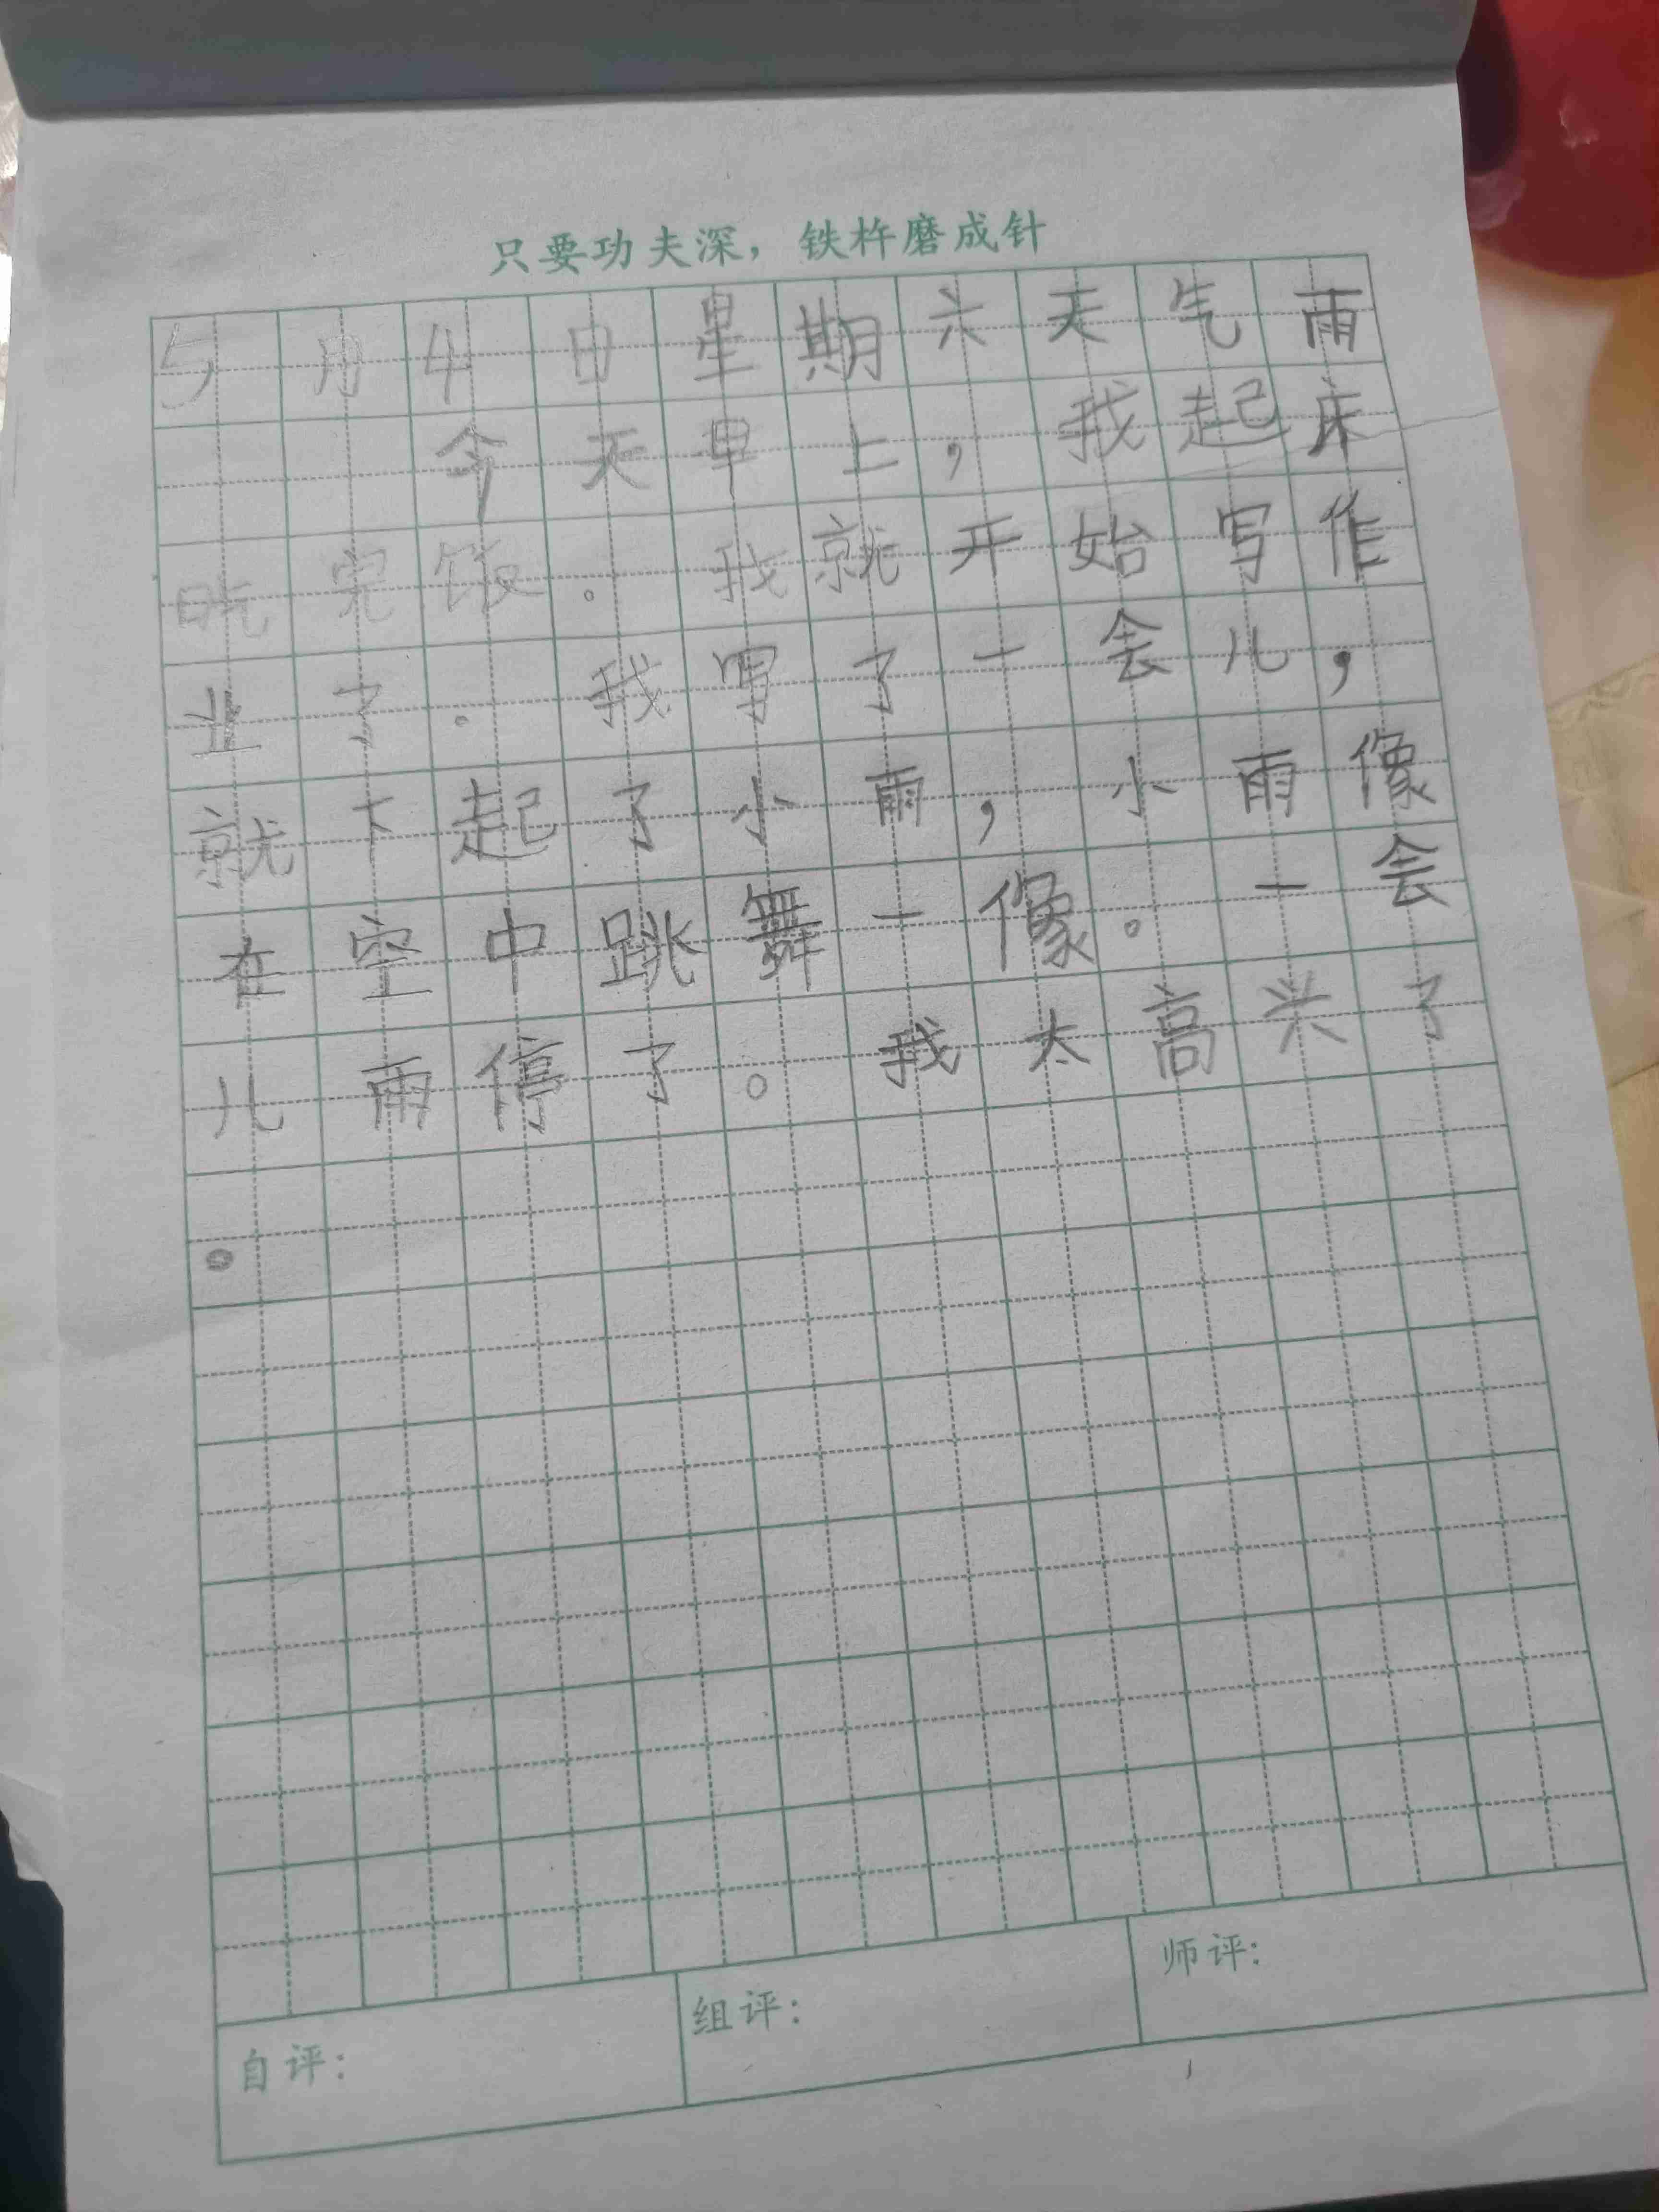 只要功夫深，铁杵磨成针
5月4日星期六天气雨
今天早上，我起床
吃完饭。我就开始写作
业了。我写了一会儿，
就下起了小雨，小雨像
在空中跳舞一像。一会
儿雨停了。我太高兴了
。
自评：
组评：
师评：